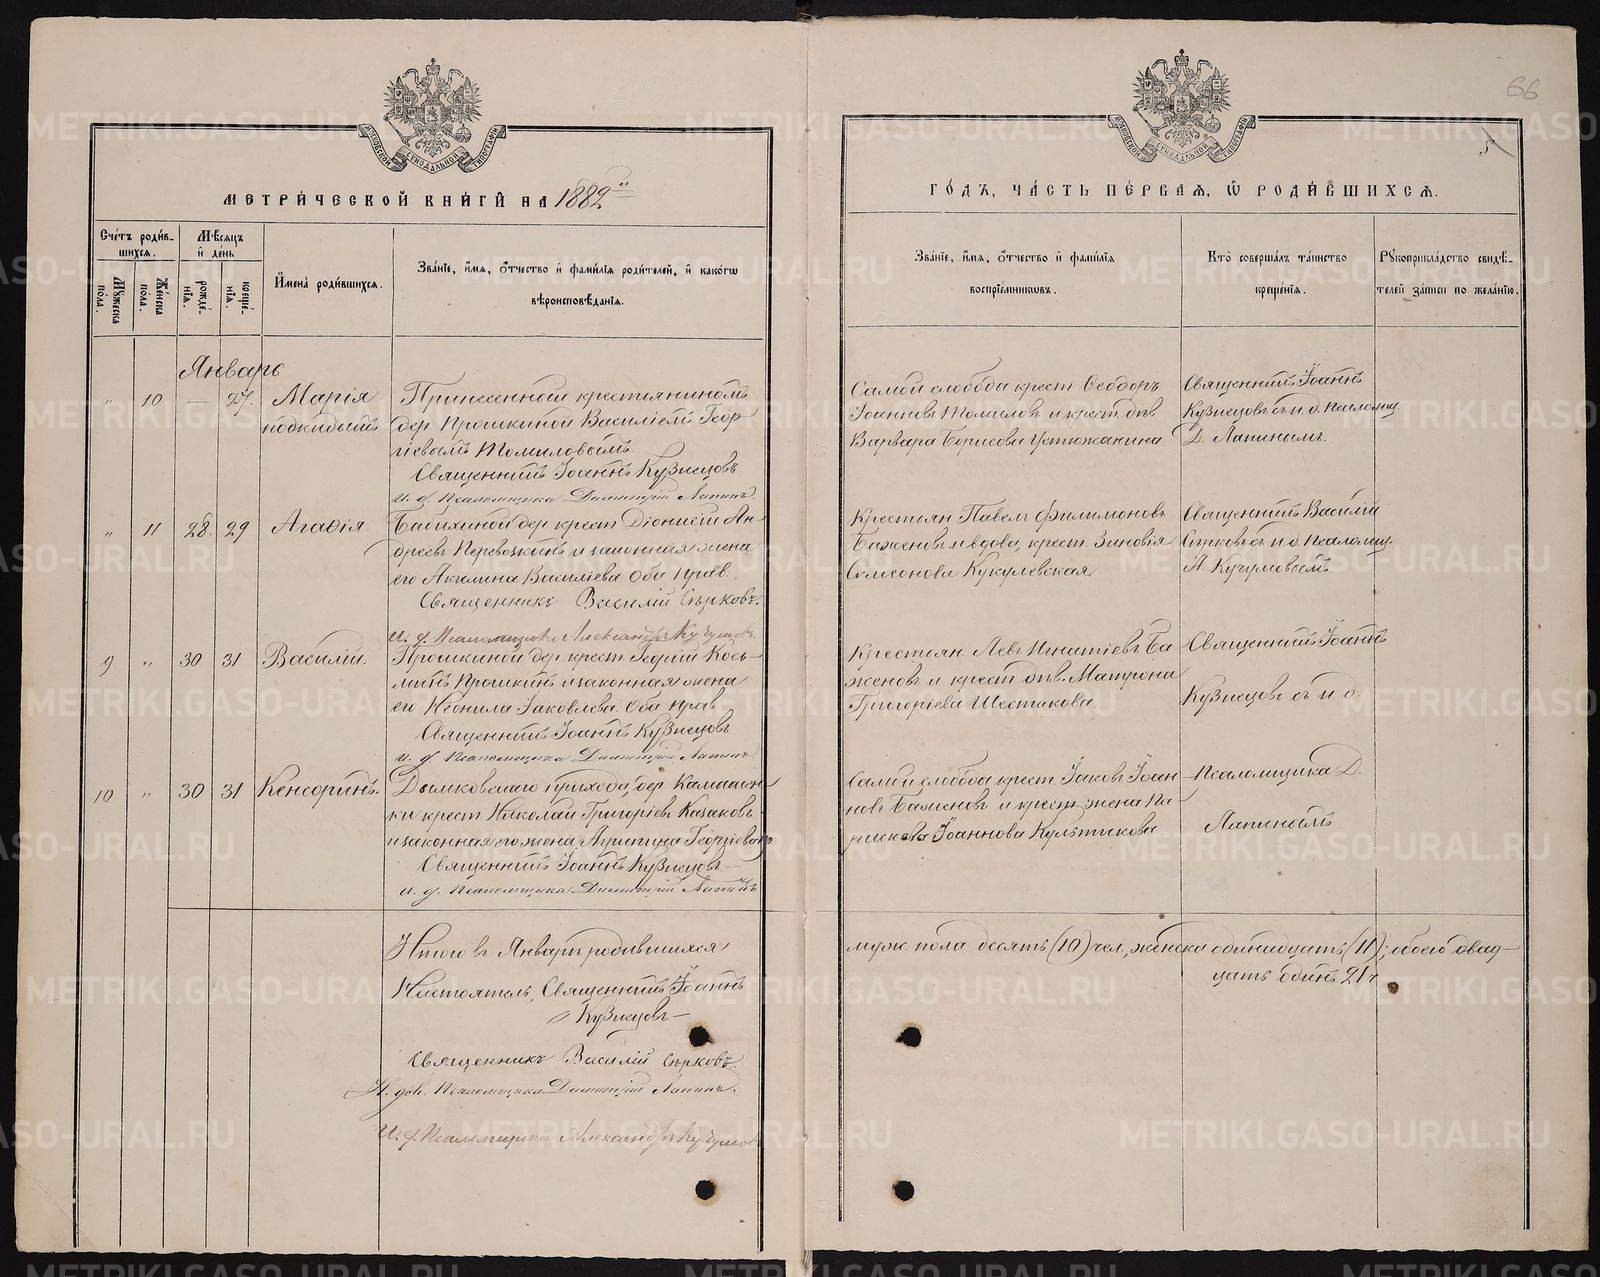 66
5
МОСКОВСКОЙ СѴНОДАЛЬНОЙ ТИПОГРАФІИ
МОСКОВСКОЙ СѴНОДАЛЬНОЙ ТИПОГРАФІИ
МЕТРИЧЕСКОЙ КНИГИ НА 1882 й
ГОДЪ, ЧАСТЬ ПЕРВАЯ, Ѡ РОДИВШИХСЯ.
Счетъ родив-
шихся.
Мѣсяцъ
и день
Мужеска пола.
Женска пола.
рожде-
нія.
креще-
нія.
Имена родившихся.
Званіе, имя, отчество и фамилія родителей, и какогѡ
вѣроисповѣданія.
Званіе, имя, отчество и фамилія
воспріемниковъ.
Кто совершалъ таинство
крещенія.
Рукоприкладство свидѣ-
телей записи по желанію.
Январь
" 10 — 27. Марія
подкидышъ
Принесенный крестьяниномъ
дер. Прошкиной Василіемъ Геор
гіевымъ Томиловымъ.
Священникъ Іоаннъ Кузнецовъ
и. д. Псаломщика Димитрій Лапинъ.
Самой слободы крест Ѳеодоръ
Іоанновъ Томиловъ и крест. дѣв.
Варвара Борисова Устюжанина
Священникъ Іоаннъ
Кузнецовъ съ и. д. Псаломщ.
Д. Лапинымъ.
" 11 28. 29 Агафія
Бабихиной дер крест Діонисій Ан-
дреевъ Перевозкинъ и законная жена
его Акилина Василіева Оба прав.
Священникъ Василій Сѣрковъ.
И. д. Псаломщика Александръ Кучумовъ.
Крестьян Павелъ Филимоновъ
Баженовъ и вдова, крест. Зиновія
Семеонова Кукулевская
Священникъ Василій
Сѣрковъ съ и. д. Псаломщ.
А Кучумовымъ
9 " 30 31 Василій.
Прошкиной дер крест Георгій Кось-
минъ Прошкинъ и законная жена
его Неонила Іаковлева Оба прав
Священникъ Іоаннъ Кузнецовъ
и. д. Псаломщика Димитрій Лапинъ
Крестьян. Левъ Игнатіевъ Ба
женовъ и крест дѣв. Матрона
Григоріева Шестакова.
Священникъ Іоаннъ
Кузнецовъ съ и. д.
10 " 30 31 Кенсоринъ.
Дымковскаго прихода, дер. Камашин-
ки крест Николай Григоріевъ Казаковъ
и законная его жена, Агрипина Георгіева
Священникъ Іоаннъ Кузнецовъ
и. д. Псаломщика Димитрій Лапинъ
Самой слободы крест. Іаковъ Іоан
новъ Баженовъ и крест. жена Па
раскева Іоаннова Культикова
Псаломщика Д.
Лапинымъ
Итого въ Январѣ родившихся
муж. пола десять (10) чел., женска одинадцать (11); обоего двад-
цать одинъ 21 ч
Настоятель, Священникъ Іоаннъ
Кузнецовъ —
Священникъ Василій Сѣрковъ.
И. дол. Псаломщика Димитрій Лапинъ.
И. д. Псаломщика Александръ Кучумовъ
METRIKI.GASO-URAL.RU